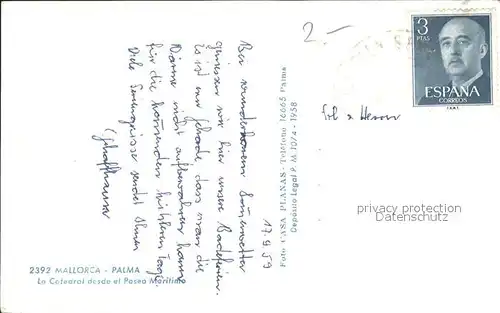 2 -
3
PTAS
ESPAÑA
CORREOS
F.N.M.T.
17.9.59
Bei wunderbarem Sommerwetter
geniessen wir hier unsere Badeferien.
Es ist nur schade, dass man die
Wärme nicht aufbewahren kann
für die kommenden kühleren Tage.
Viele Sonnengrüsse sendet Ihnen
Frl. u. Herrn
privacy protection
Datenschutz
Foto CASA PLANAS - Teléfono 16665 Palma
Depósito Legal P.M. 1074 - 1958
2392 MALLORCA - PALMA
La Catedral desde el Paseo Marítimo